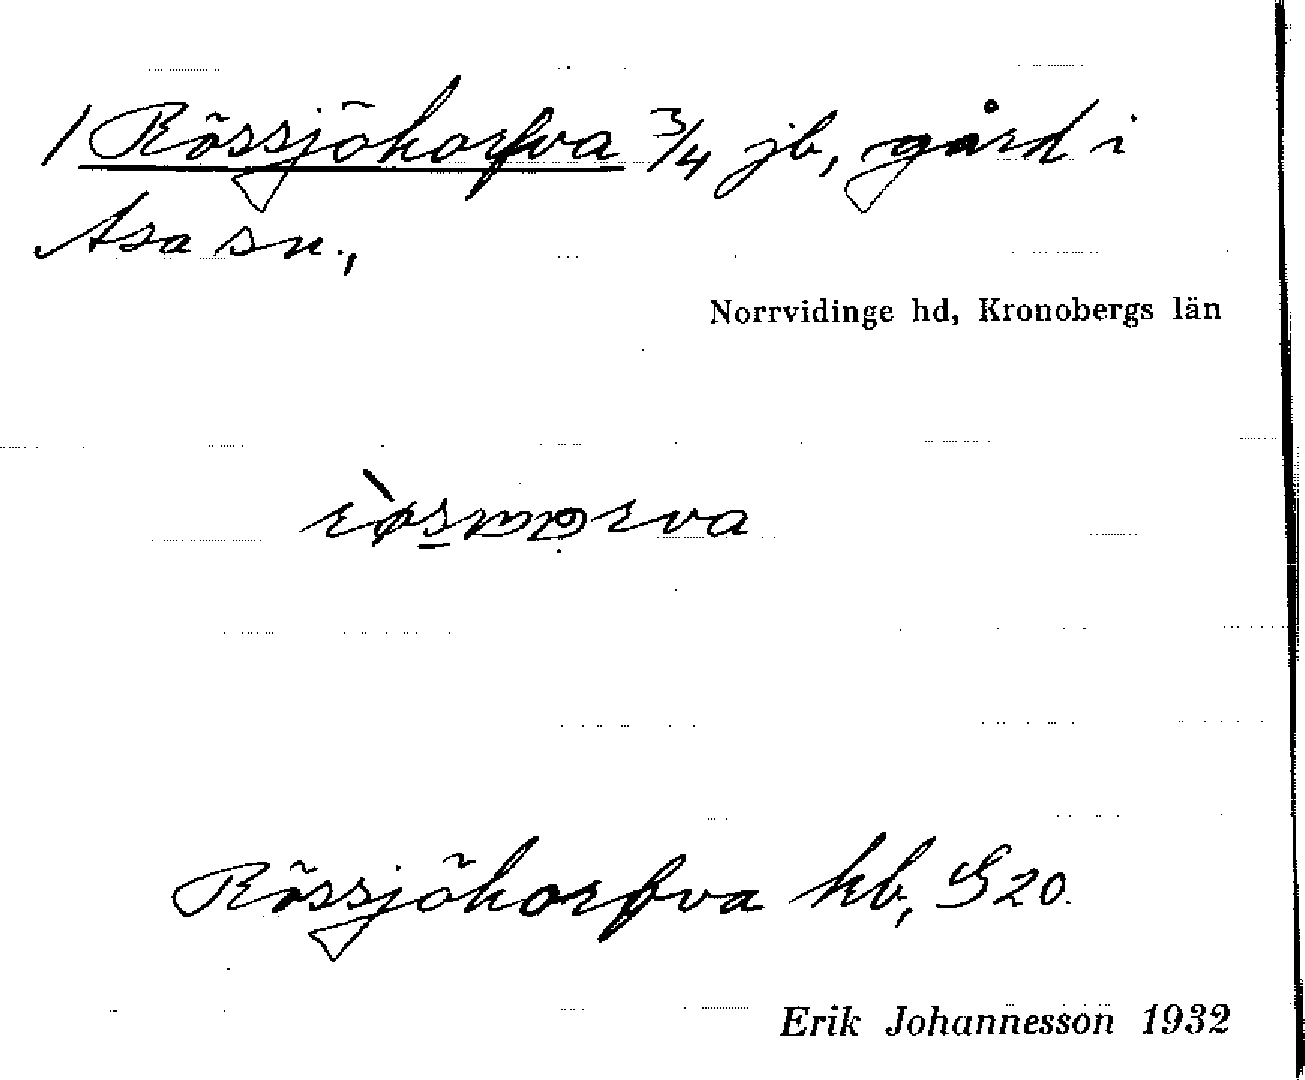 1 Rössjöhorfva 3/4 jb, gård i
Asa sn.,
Norrvidinge hd, Kronobergs län
Rössjöhorfva kb, G20.
Erik Johannesson 1932